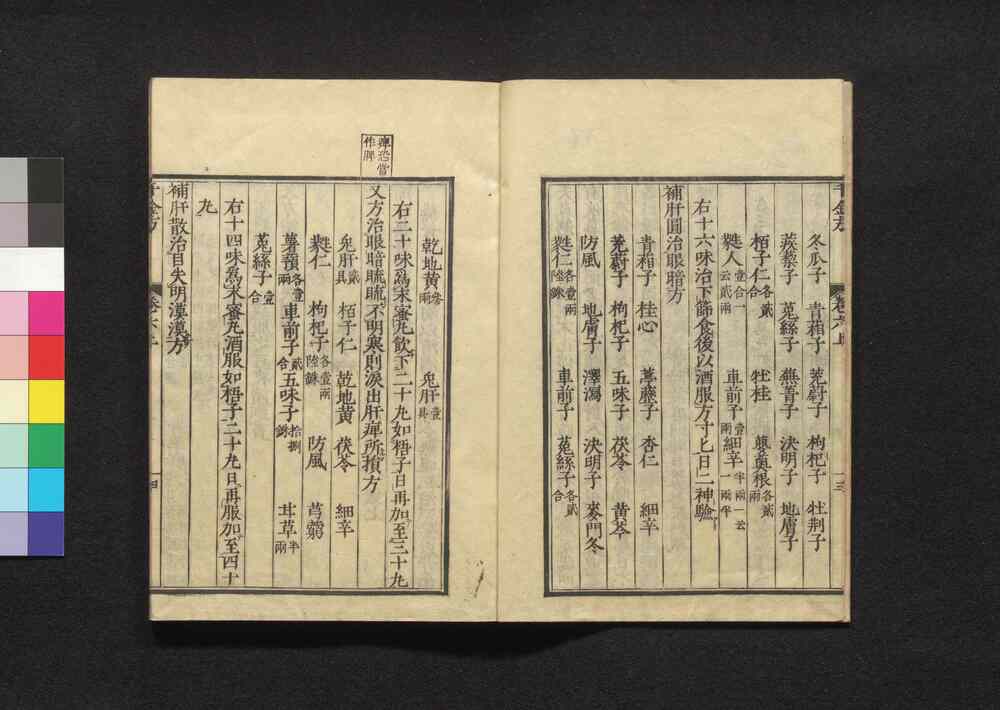 冬瓜子 青葙子 茺蔚子 枸杞子 牡荆子
蒺䔧子 菟絲子 蕪菁子 決明子 地膚子
栢子仁各貳合 牡桂 蕤蕤根各貳兩
蕤人壹合一云貳兩 車前子壹兩 細辛半兩一云一兩半
右十六味治下篩食後以酒服方寸匕日二神驗
補肝圓治眼暗方
青葙子 桂心 葶藶子 杏仁 細辛
茺蔚子 枸杞子 五味子 茯苓 黄芩
防風 地膚子 澤瀉 決明子 麥門冬
蕤仁各壹兩陸銖 車前子 菟絲子各貳合
乾地黄貳兩 兔肝壹具
右二十味爲末蜜丸飲下二十丸如梧子日再加至三十丸
又方治眼暗𥇀𥇀不明寒則淚出肝痺所損方
痺恐當
作脾
兔肝貳具 栢子仁 乾地黄 茯苓 細辛
蕤仁 枸杞子各壹兩陸銖 防風 芎藭
薯蕷各壹兩 車前子貳合 五味子拾捌銖 甘草半兩
菟絲子壹合
右十四味爲末蜜丸酒服如梧子二十丸日再服加至四十
丸
補肝散治目失明漠漠方